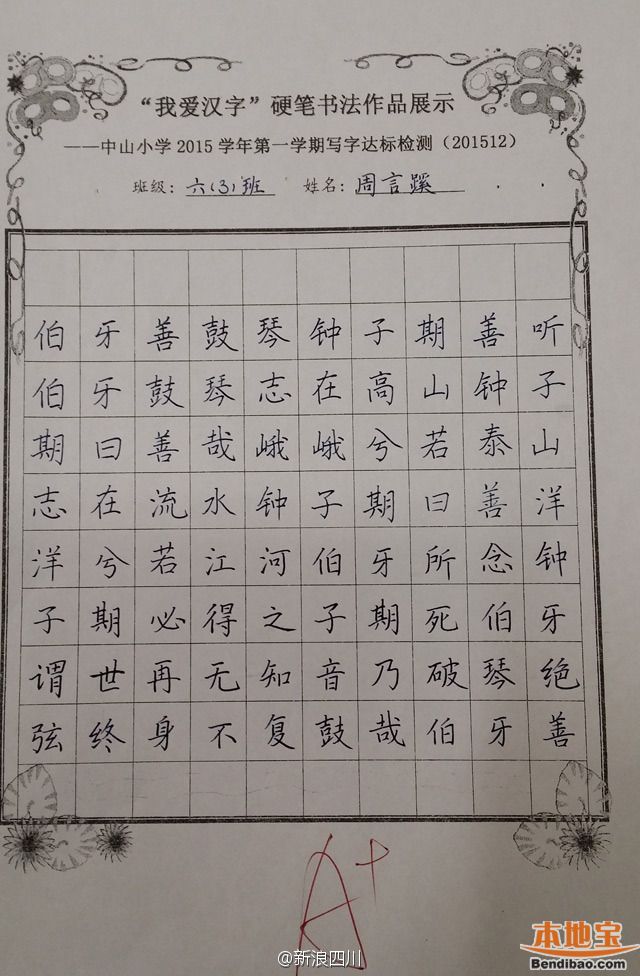 “我爱汉字”硬笔书法作品展示
——中山小学2015学年第一学期写字达标检测（201512）
班级：六（3）班 姓名：周言蹊
伯牙善鼓琴钟子期善听
伯牙鼓琴志在高山钟子
期曰善哉峨峨兮若泰山
志在流水钟子期曰善洋
洋兮若江河伯牙所念钟
子期必得之子期死伯牙
谓世再无知音乃破琴绝
弦终身不复鼓哉伯牙善
A+
@新浪四川
本地宝
Bendibao.com